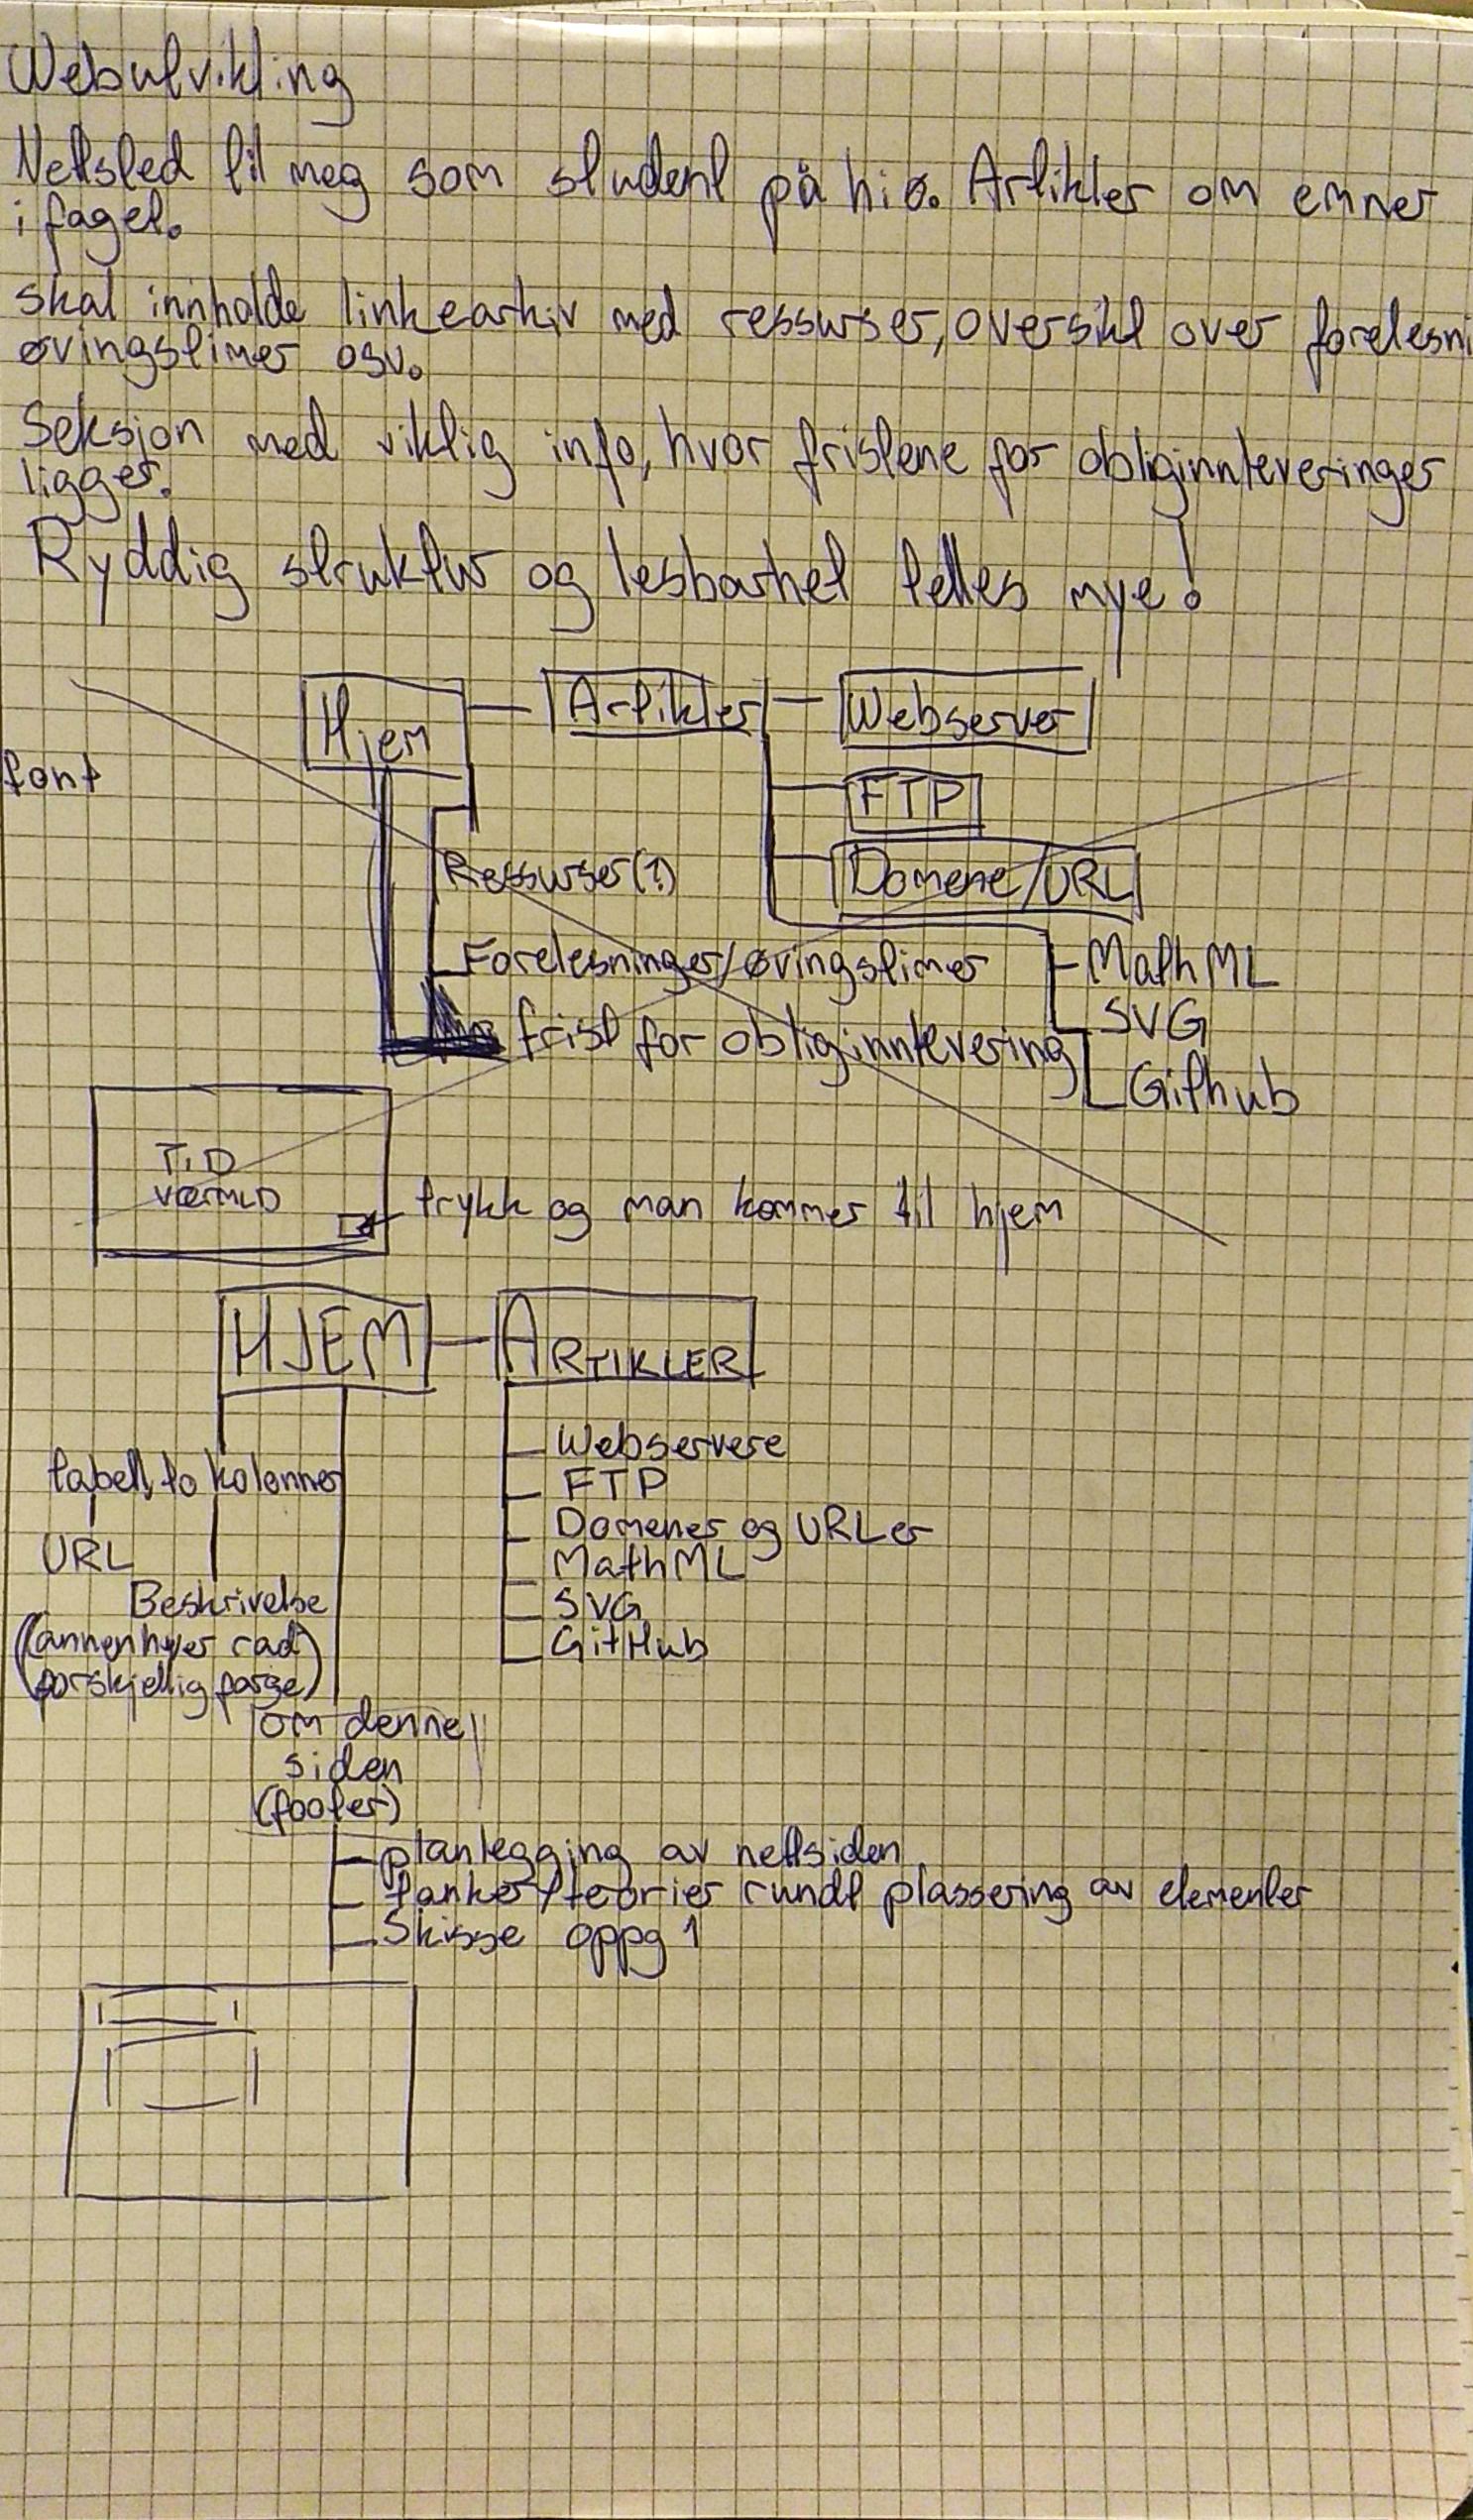 Webutvikling
Nettsted til meg som student på hiø. Artikler om emner
i faget.
skal innholde linkearkiv med ressurser, oversikt over forelesni
øvingstimer osv.
Seksjon med viktig info, hvor fristene for obliginnleveringer
ligger.
Ryddig struktur og lesbarhet telles mye!
Hjem Artikler Webserver
font
FTP
Ressurser(?) Domene/URL
Forelesninger/øvingstimer MathML
SVG
frist for obliginnlevering
Github
TID
VÆRMLD
trykk og man kommer til hjem
HJEM ARTIKLER
Webservere
tabell, to kolonner FTP
Domener og URLer
URL MathML
Beskrivelse SVG
(annenhver rad GitHub
forskjellig farge)
om denne
siden
(footer)
planlegging av nettsiden
tanker/teorier rundt plassering av elementer
Skisse oppg 1